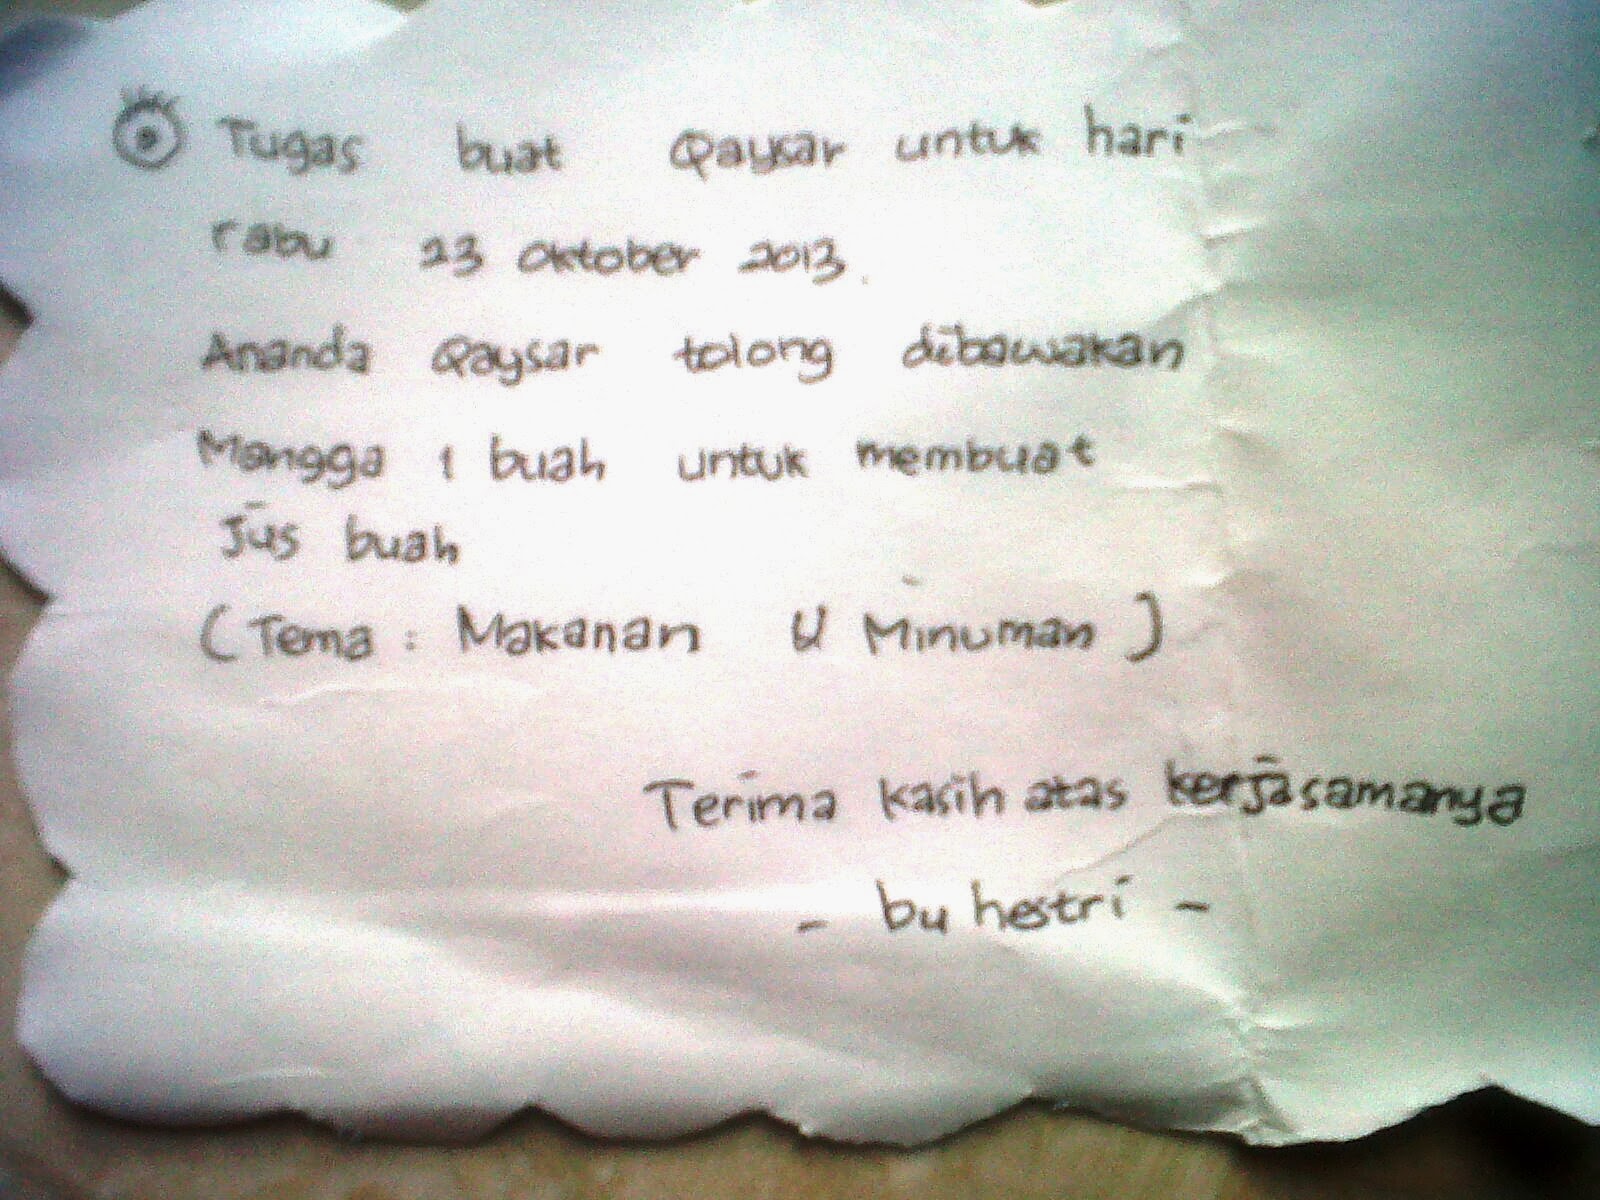 Tugas buat Qaysar untuk hari
rabu 23 Oktober 2013.
Ananda Qaysar tolong dibawakan
Mangga 1 buah untuk membuat
Jus buah
(Tema : Makanan & Minuman)
Terima kasih atas kerjasamanya
- bu hestri -